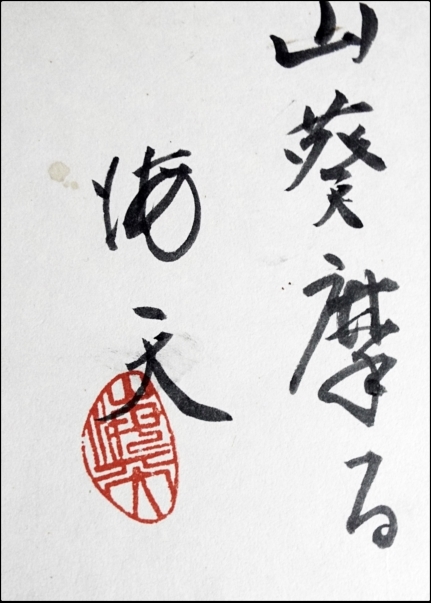 山葵摩る
海天